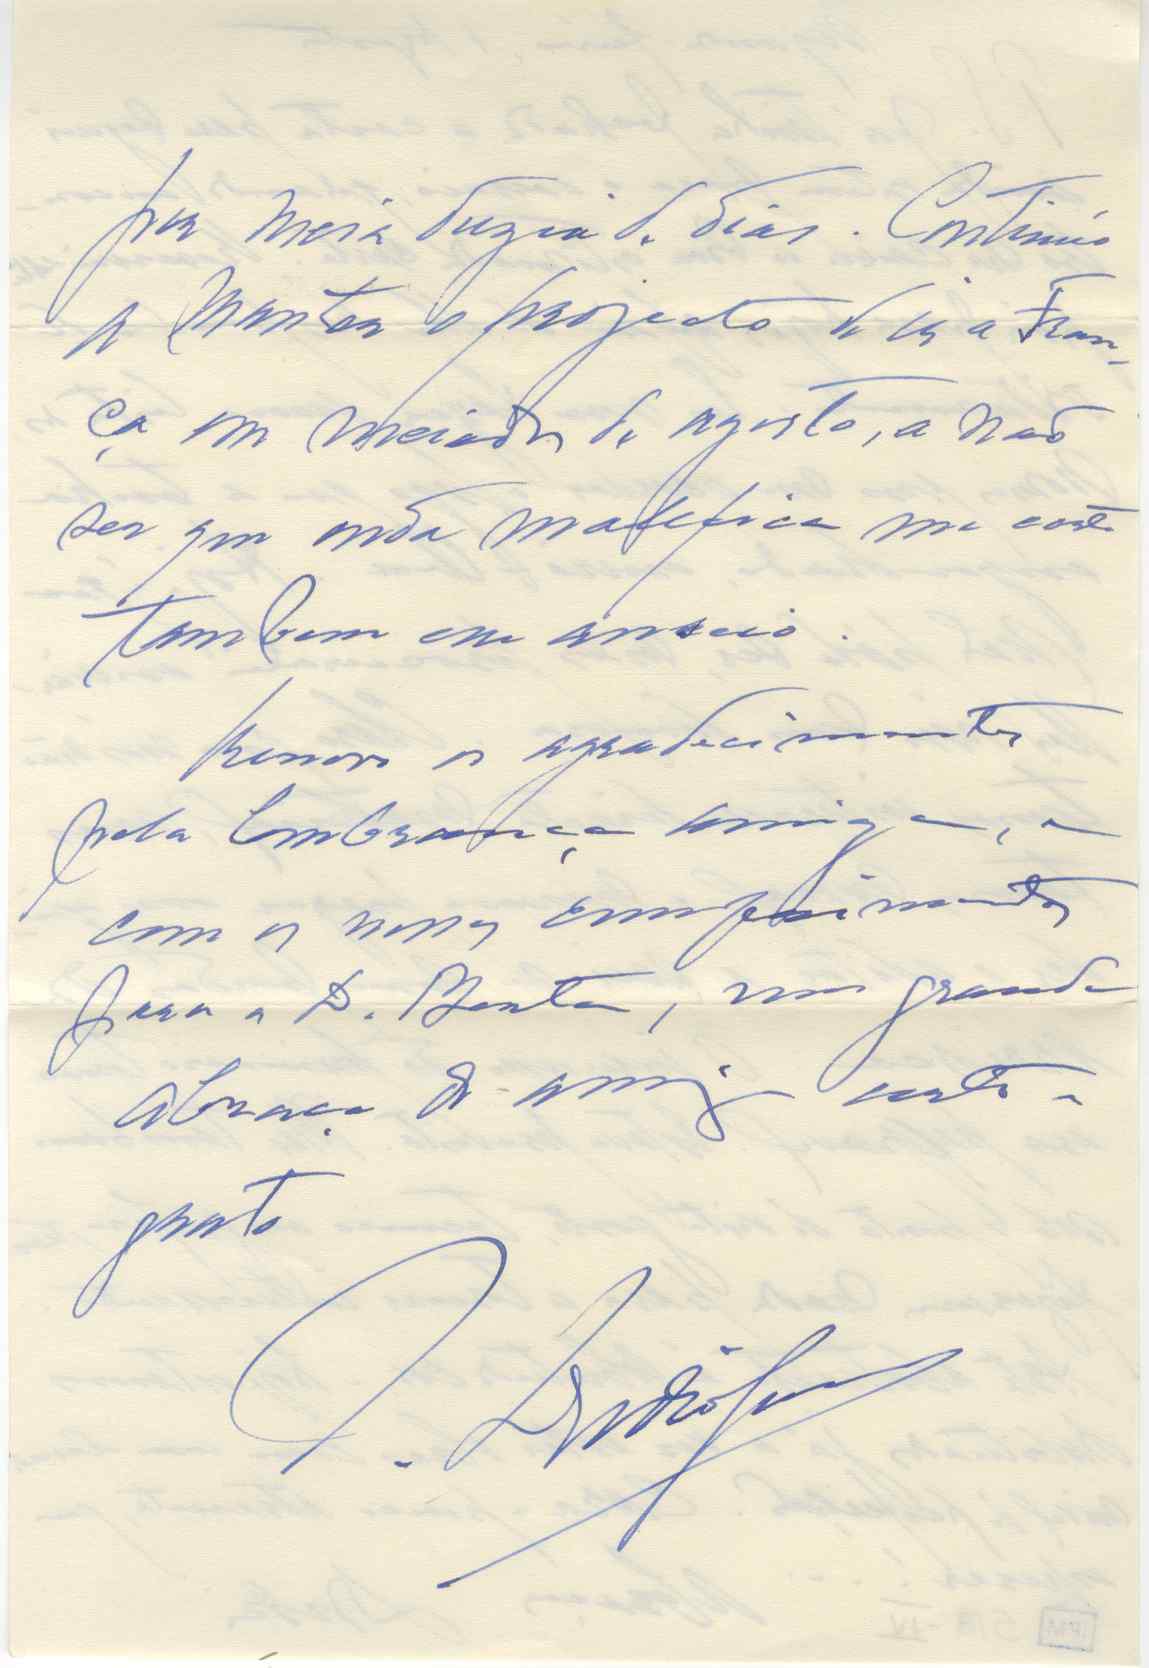 por meia duzia de dias. Continúo
a manter o projecto de ir a Fran-
ça em meiados de agosto, a não
ser que onda malefica me corte
tambem esse anseio.
Renovo os agradecimentos
pela lembrança amiga, e
com os nossos cumprimentos
para a D. Berta, um grande
abraço do amigo certo e
grato